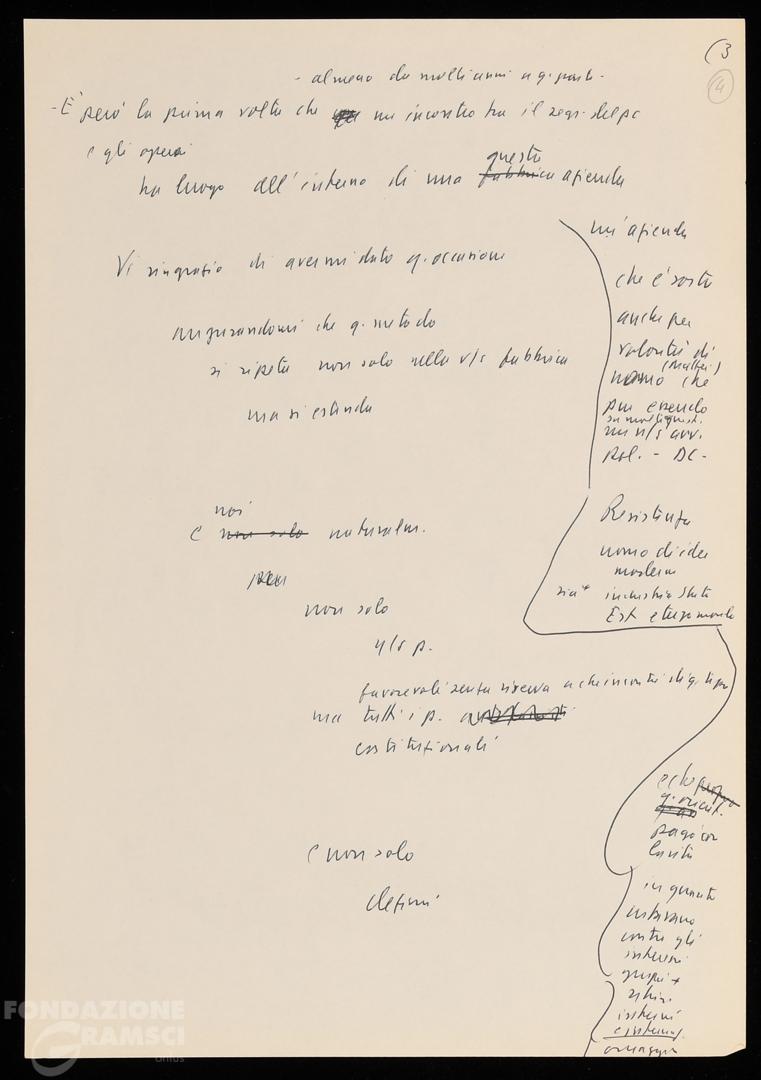 (3
(4)
- almeno da molti anni a q. parte -
- E' però la prima volta che un incontro tra il segr. del pc
e gli operai
questa
ha luogo all'interno di una fabbrica azienda
Vi ringrazio di avermi dato q. occasione
augurandomi che q. metodo
si ripeta non solo nella v/s fabbrica
ma si estenda
noi
e non solo naturalm.
non solo
n/s p.
favorevoli senza riserva a che incontri di q. tipo
ma tutti i p.
costituzionali
e non solo
un'azienda
che è sorta
anche per
volontà di
(Mattei)
uomo che
pur essendo
su molte quest.
un n/s avv.
pol. - DC -
Resistenza
uomo di idee
moderne
industria Stato
Est e terzo mondo
q. orient.
pagò con
la vita
in quanto
urtavano
contro gli
interessi
gruppi +
interni
e esterni